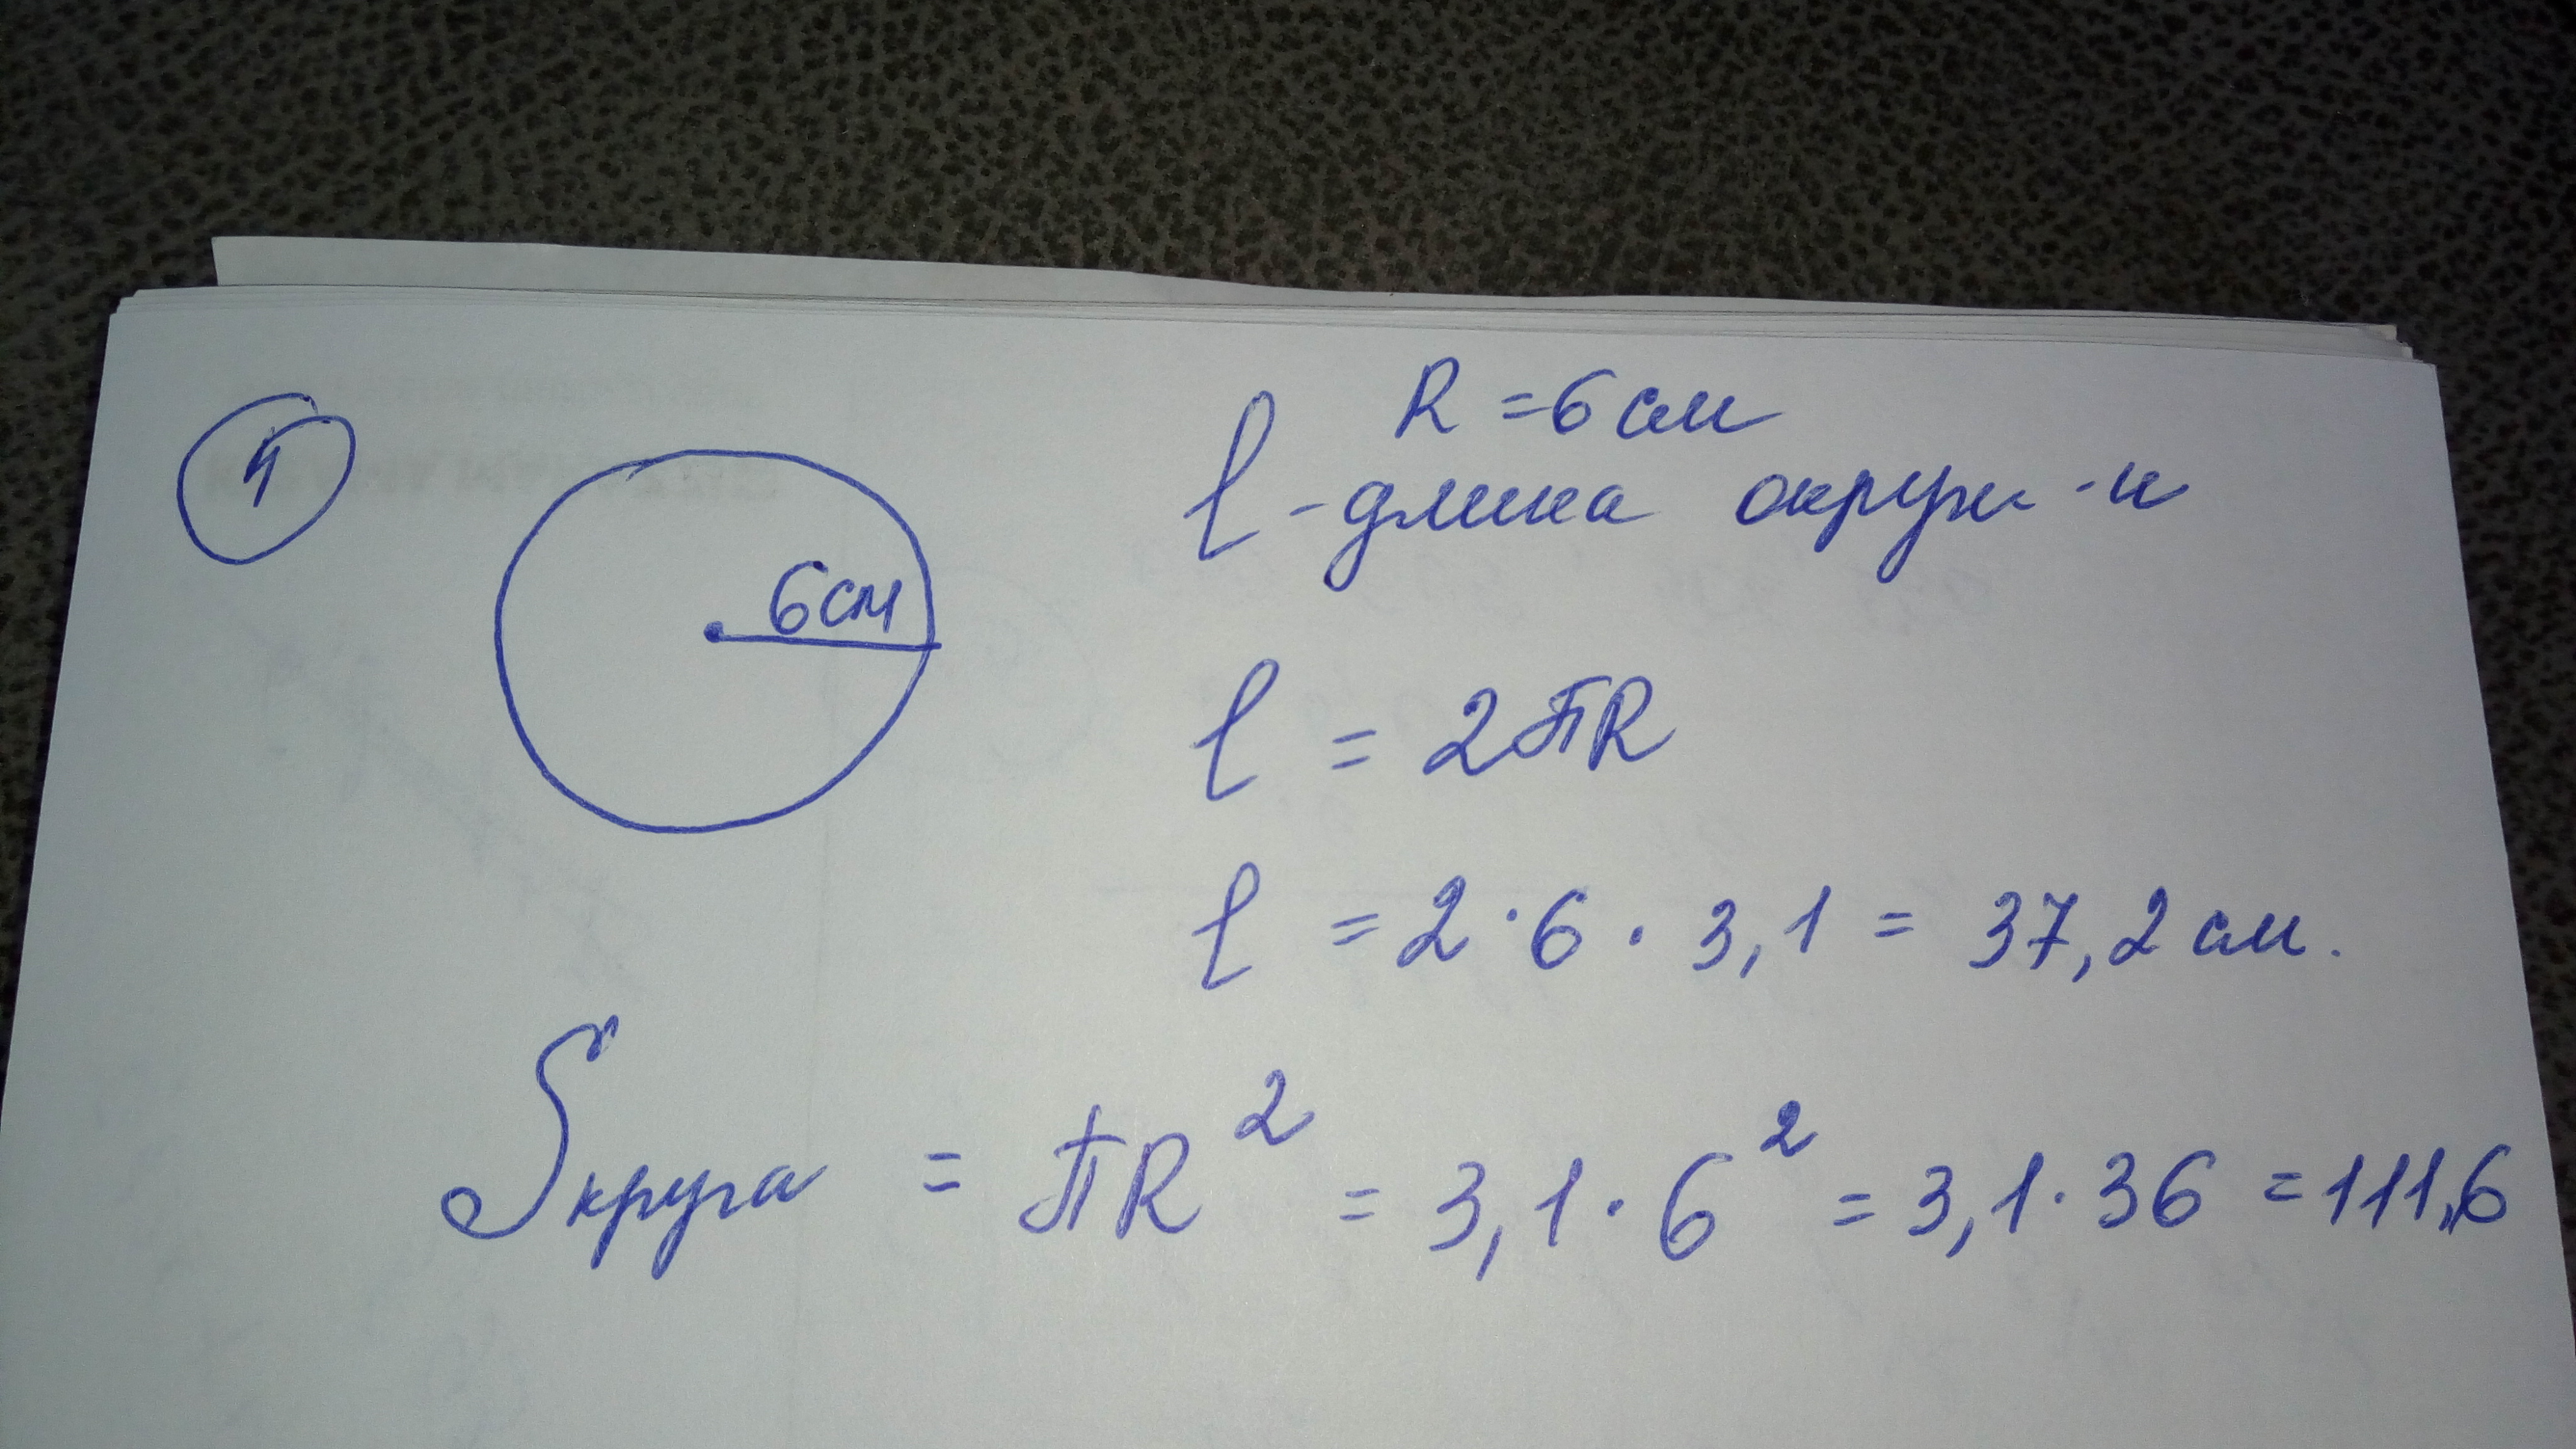 1
R = 6 см
l - длина окруж-и
6 см
l = 2πR
l = 2 · 6 · 3,1 = 37,2 см.
Sкруга = πR² = 3,1 · 6² = 3,1 · 36 = 111,6